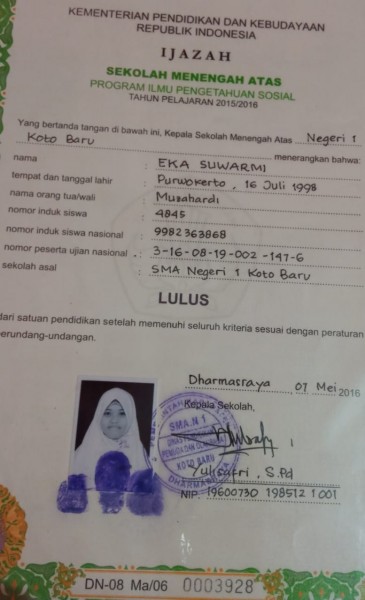 KEMENTERIAN PENDIDIKAN DAN KEBUDAYAAN
REPUBLIK INDONESIA
IJAZAH
SEKOLAH MENENGAH ATAS
PROGRAM ILMU PENGETAHUAN SOSIAL
TAHUN PELAJARAN 2015/2016
Yang bertanda tangan di bawah ini, Kepala Sekolah Menengah Atas Negeri 1
Koto Baru menerangkan bahwa:
nama : EKA SUWARMI
tempat dan tanggal lahir : Purwokerto, 16 Juli 1998
nama orang tua/wali : Muzahardi
nomor induk siswa : 4845
nomor induk siswa nasional : 9982363868
nomor peserta ujian nasional : 3-16-08-19-002-147-6
sekolah asal : SMA Negeri 1 Koto Baru
LULUS
dari satuan pendidikan setelah memenuhi seluruh kriteria sesuai dengan peraturan
perundang-undangan.
Dharmasraya, 07 Mei 2016
Kepala Sekolah,
SMA.N 1
KOTO BARU
Yulisafri, S.Pd
NIP. 19600730 198512 1 001
DN-08 Ma/06 0003928